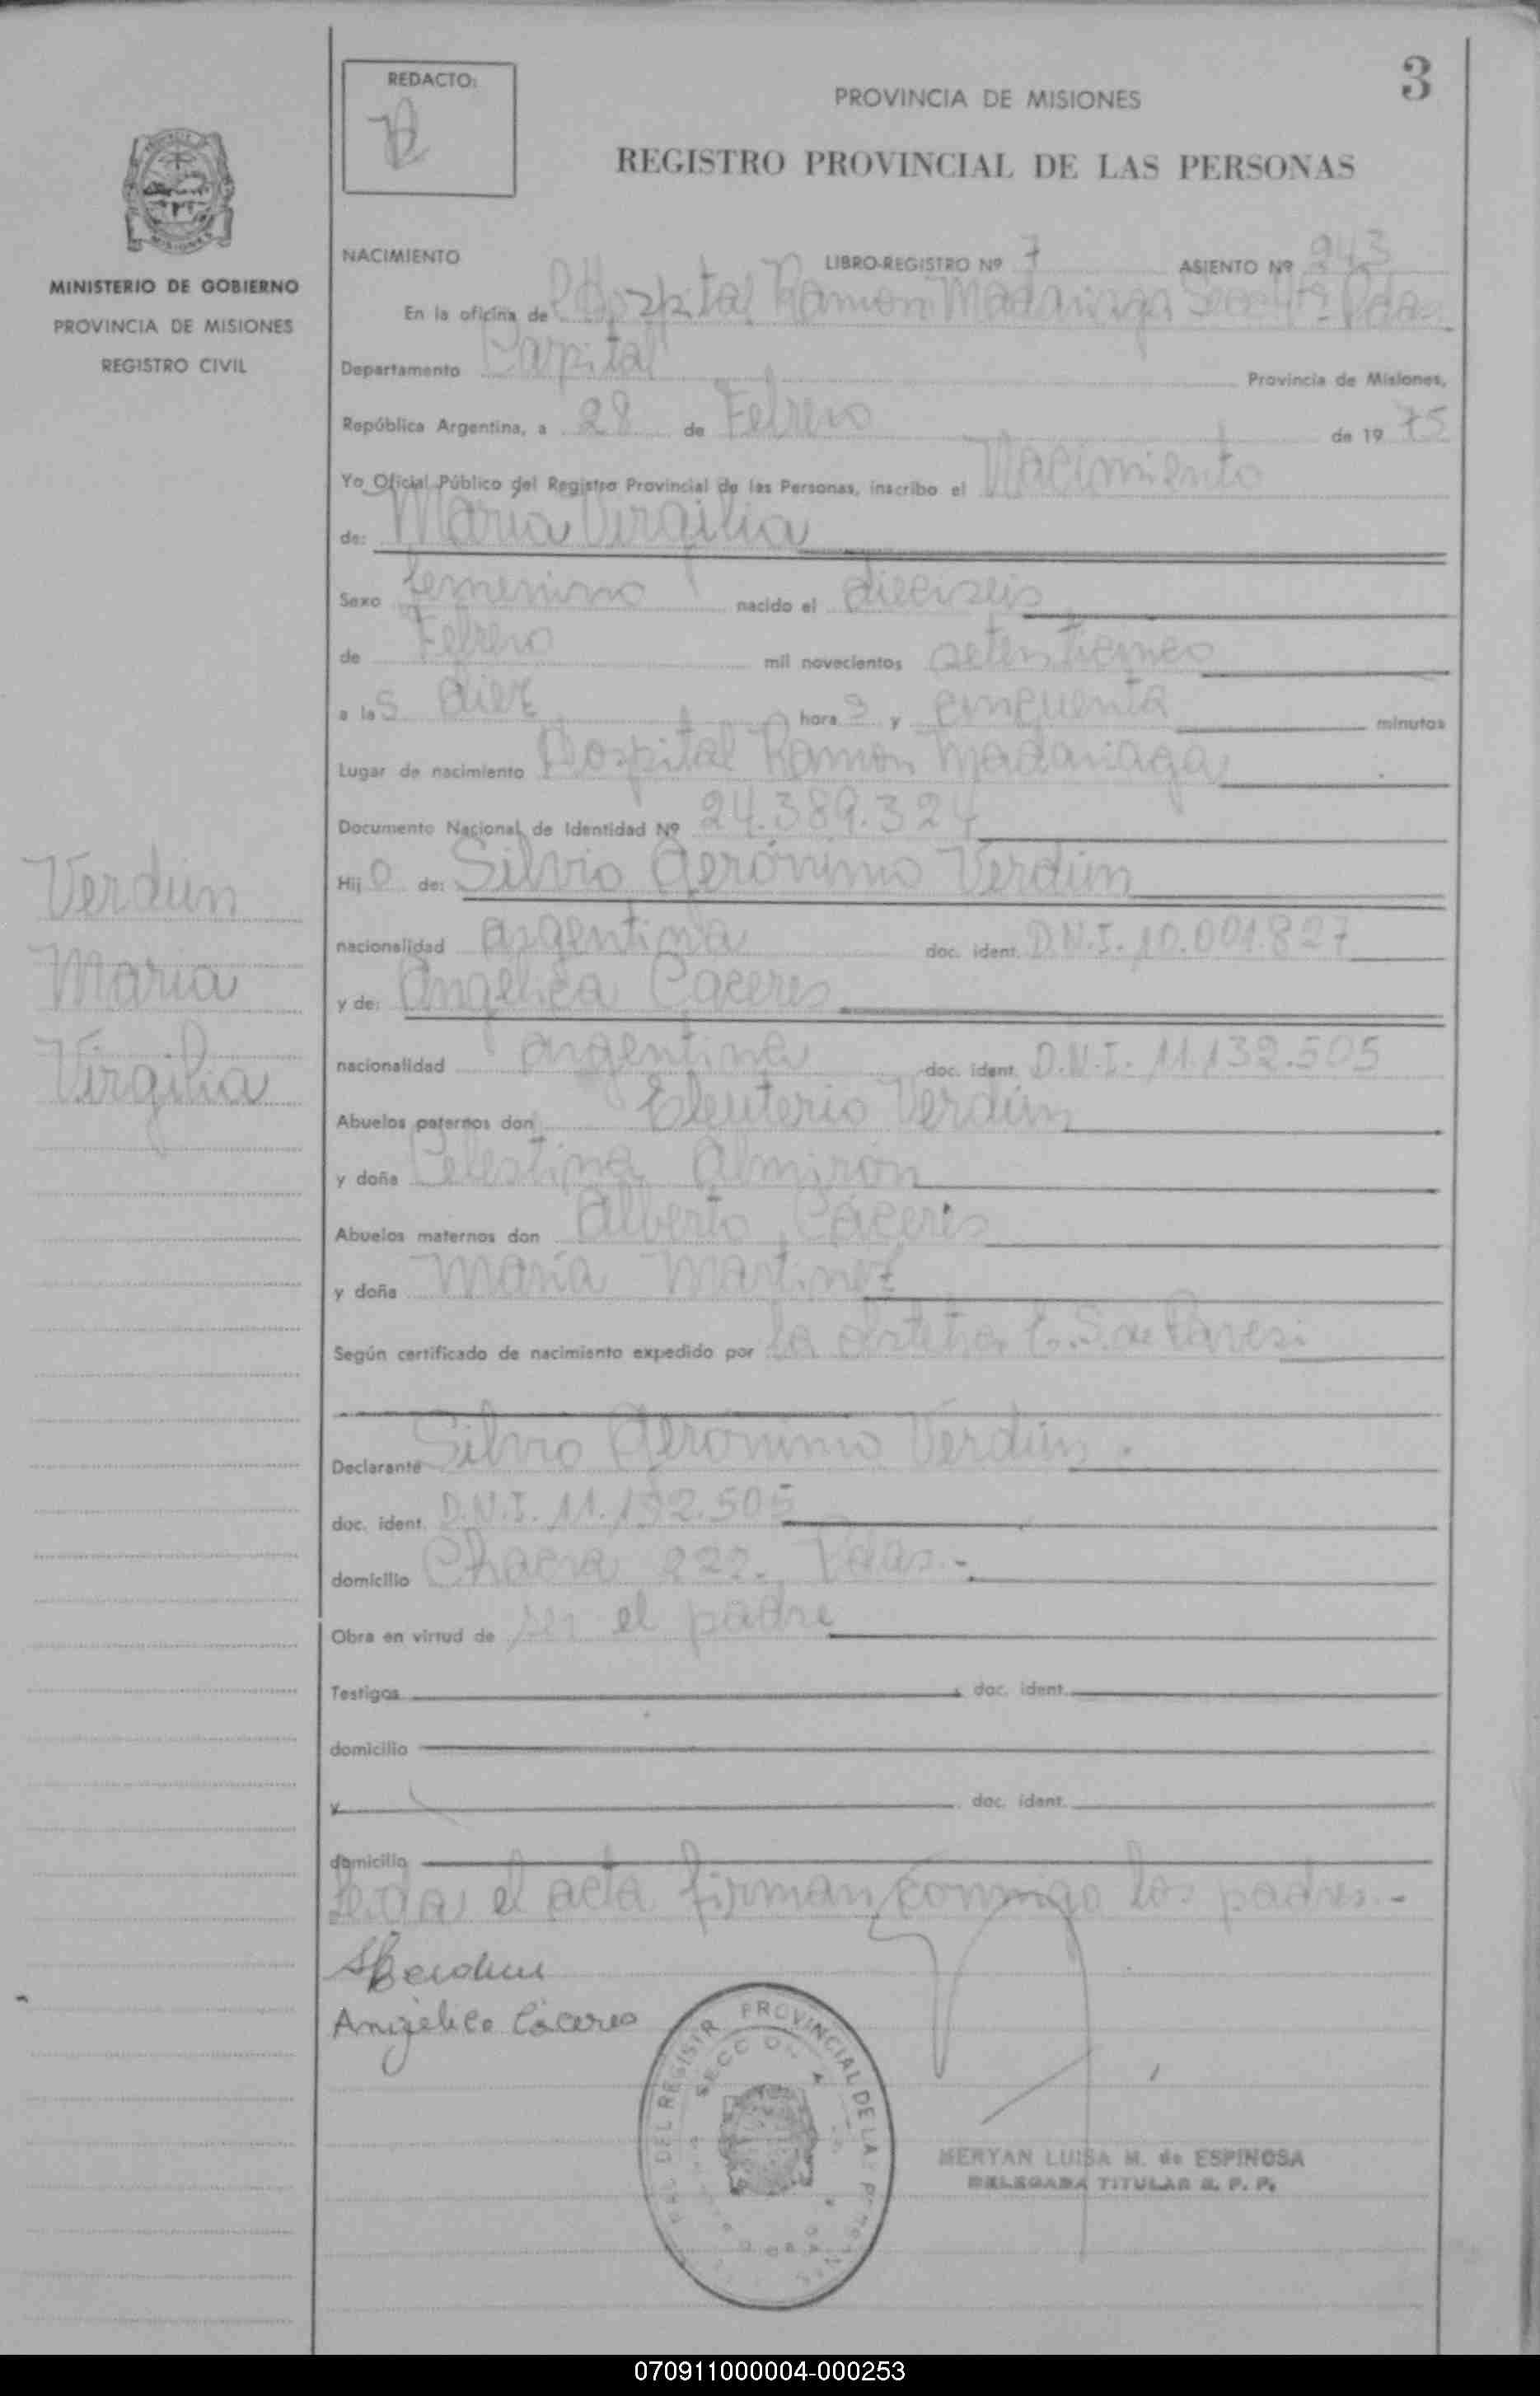 3
REDACTO:
PROVINCIA DE MISIONES
REGISTRO PROVINCIAL DE LAS PERSONAS
MINISTERIO DE GOBIERNO
PROVINCIA DE MISIONES
REGISTRO CIVIL
NACIMIENTO LIBRO-REGISTRO Nº 7 ASIENTO Nº 943
En la oficina de Hospital Ramon Madariaga Pdas
Departamento Capital Provincia de Misiones,
República Argentina, a 28 de Febrero de 19 75
Yo Oficial Público del Registro Provincial de las Personas, inscribo el Nacimiento
de: Maria Virgilia
Sexo femenino nacido el dieciseis
de Febrero mil novecientos setenticinco
a las diez hora s y cincuenta minutos
Lugar de nacimiento Hospital Ramon Madariaga
Documento Nacional de Identidad Nº 24.389.324
Hij o de: Silvio Gerónimo Verdún
nacionalidad argentina doc. ident. D.N.I. 10.001.827
y de: Angelica Caceres
nacionalidad argentina doc. ident. D.N.I. 11.132.505
Abuelos paternos don Eleuterio Verdún
y doña Celestina Almirón
Abuelos maternos don Alberto Cáceres
y doña María Martinez
Según certificado de nacimiento expedido por la obstetra E. S. de Paresi
Declarante Silvio Gerónimo Verdún.
doc. ident. D.N.I. 11.132.505
domicilio Chacra 222. Pdas.-
Obra en virtud de ser el padre
Testigos doc. ident.
domicilio
y doc. ident.
domicilio
Leida el acta firman conmigo los padres.-
Angélica Cáceres
Verdún
Maria
Virgilia
DEL REGISTR PROVINCIAL DE LA
MERYAN LUISA M. de ESPINOSA
DELEGADA TITULAR R. P. P.
070911000004-000253